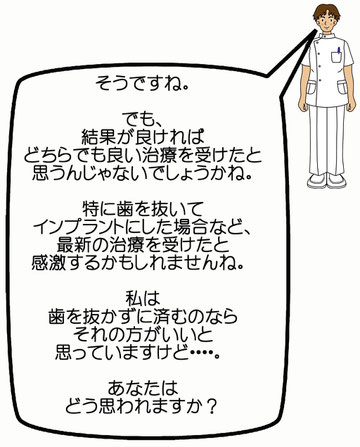 そうですね。
でも、
結果が良ければ
どちらでも良い治療を受けたと
思うんじゃないでしょうかね。
特に歯を抜いて
インプラントにした場合など、
最新の治療を受けたと
感激するかもしれませんね。
私は
歯を抜かずに済むのなら
それの方がいいと
思っていますけど・・・・。
あなたは
どう思われますか？